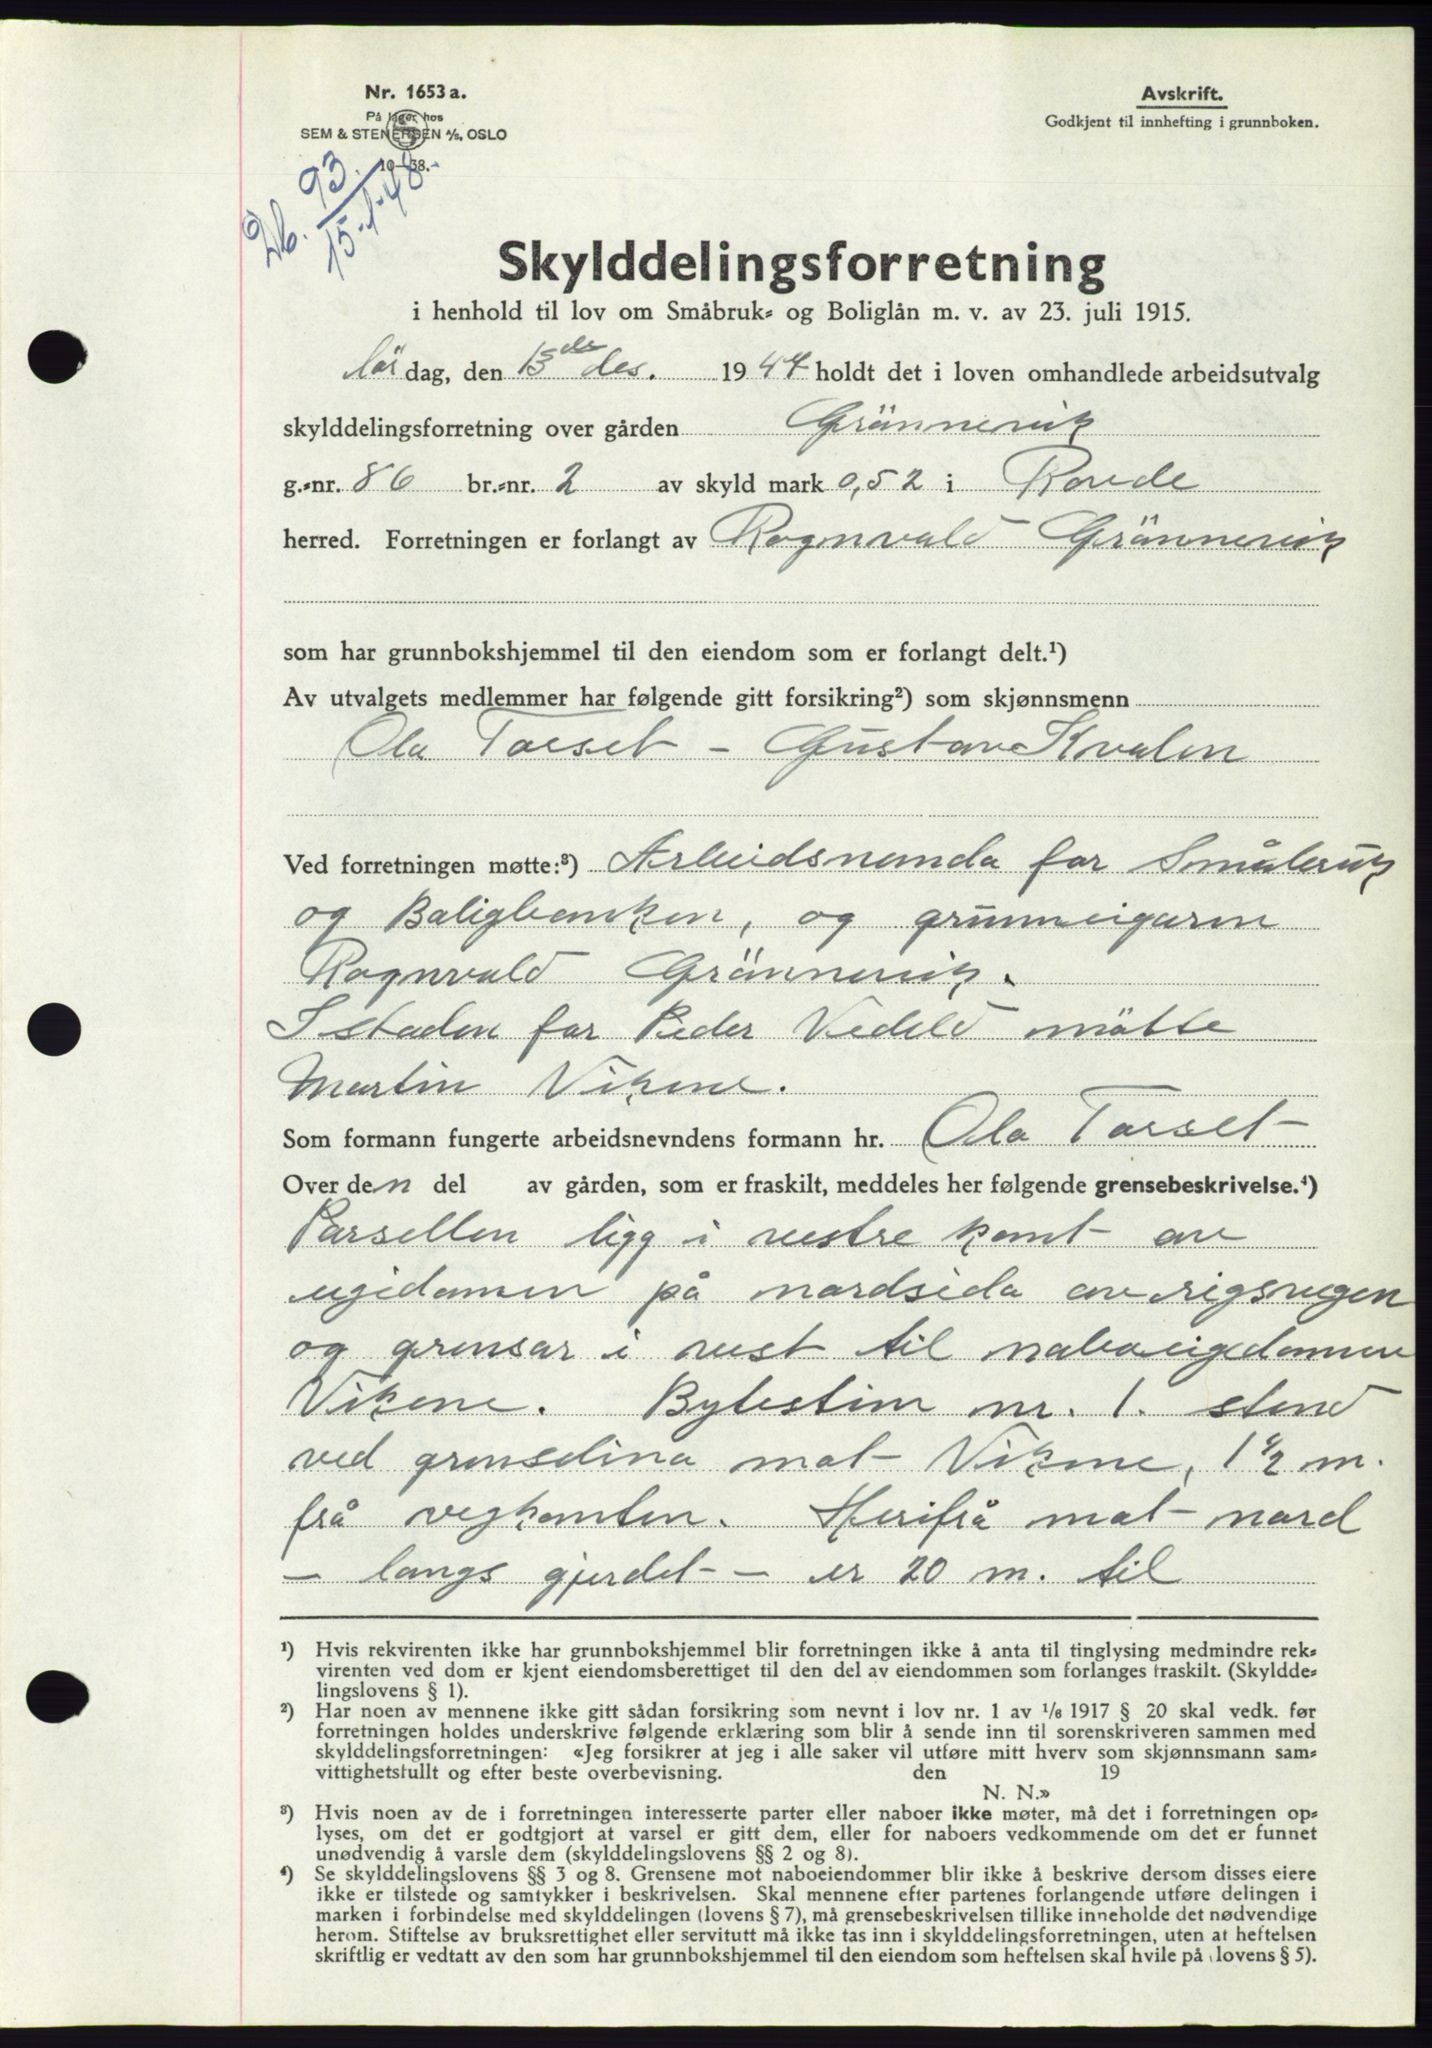 Nr. 1653a.
På lager hos
SEM & STENERSEN A/S, OSLO
10—38.
Avskrift.
Godkjent til innhefting i grunnboken.
Db. 93. / 15-1-48.-
Skylddelingsforretning
i henhold til lov om Småbruk- og Boliglån m. v. av 23. juli 1915.
lör dag, den 13de des. 1947 holdt det i loven omhandlede arbeidsutvalg
skylddelingsforretning over gården Grönnevik
g.-nr. 86 br.-nr. 2 av skyld mark 0,52 i Rovde
herred. Forretningen er forlangt av Rognvald Grönnevik
som har grunnbokshjemmel til den eiendom som er forlangt delt.¹)
Av utvalgets medlemmer har følgende gitt forsikring²) som skjønnsmenn
Ola Torset - Gustav Kvalen
Ved forretningen møtte:³) Arbeidsnemda for Småbruk
og Boligbanken, og grunneigaren
Rognvald Grönnevik.
I staden for Peder Vedeld mötte
Martin Vikene.
Som formann fungerte arbeidsnevndens formann hr. Ola Torset
Over den del av gården, som er fraskilt, meddeles her følgende grensebeskrivelse.⁴)
Parsellen ligg i vestre kant av
eigidomen på nordsida av rigsvegen
og grensar i vest til naboeigedomen
Vikene. Bytestein nr. 1. stend
ved grenselina mot Vikene, 1 1/2 m.
frå vegkanten. Herifrå mot nord
— langs gjerdet — er 20 m. til
¹) Hvis rekvirenten ikke har grunnbokshjemmel blir forretningen ikke å anta til tinglysing medmindre rek-
virenten ved dom er kjent eiendomsberettiget til den del av eiendommen som forlanges fraskilt. (Skyldde-
lingslovens § 1).
²) Har noen av mennene ikke gitt sådan forsikring som nevnt i lov nr. 1 av 1/6 1917 § 20 skal vedk. før
forretningen holdes underskrive følgende erklæring som blir å sende inn til sorenskriveren sammen med
skylddelingsforretningen: «Jeg forsikrer at jeg i alle saker vil utføre mitt hverv som skjønnsmann sam-
vittighetsfullt og efter beste overbevisning. den 19
N. N.»
³) Hvis noen av de i forretningen interesserte parter eller naboer ikke møter, må det i forretningen op-
lyses, om det er godtgjort at varsel er gitt dem, eller for naboers vedkommende om det er funnet
unødvendig å varsle dem (skylddelingslovens §§ 2 og 8).
⁴) Se skylddelingslovens §§ 3 og 8. Grensene mot naboeiendommer blir ikke å beskrive dersom disses eiere
ikke er tilstede og samtykker i beskrivelsen. Skal mennene efter partenes forlangende utføre delingen i
marken i forbindelse med skylddelingen (lovens § 7), må grensebeskrivelsen tillike inneholde det nødvendige
herom. Stiftelse av bruksrettighet eller servitutt må ikke tas inn i skylddelingsforretningen, uten at heftelsen
skriftlig er vedtatt av den som har grunnbokshjemmel til den eiendom som heftelsen skal hvile på (lovens § 5).